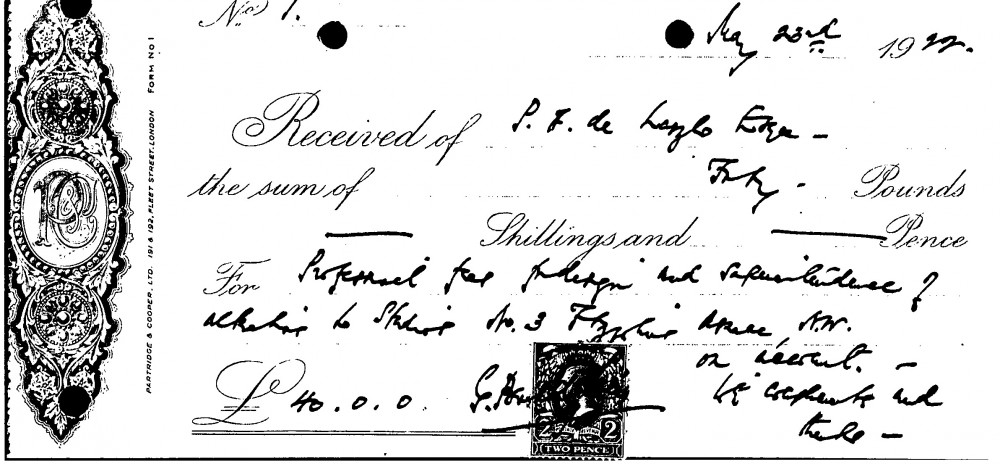 No. 1.
May 23rd 1922.
Received of P. F. de Laszlo Esqre —
the sum of Forty - Pounds
— Shillings and — Pence
For Professional fees for design and superintendence of
alterations to Studios No. 3 Fitzjohns Avenue, N.W.
on account. —
£ 40.0.0. G.
With compliments and
thanks —
2 2
TWO PENCE
PARTRIDGE & COOPER, LTD. 191 & 192, FLEET STREET, LONDON FORM No 1
P&C